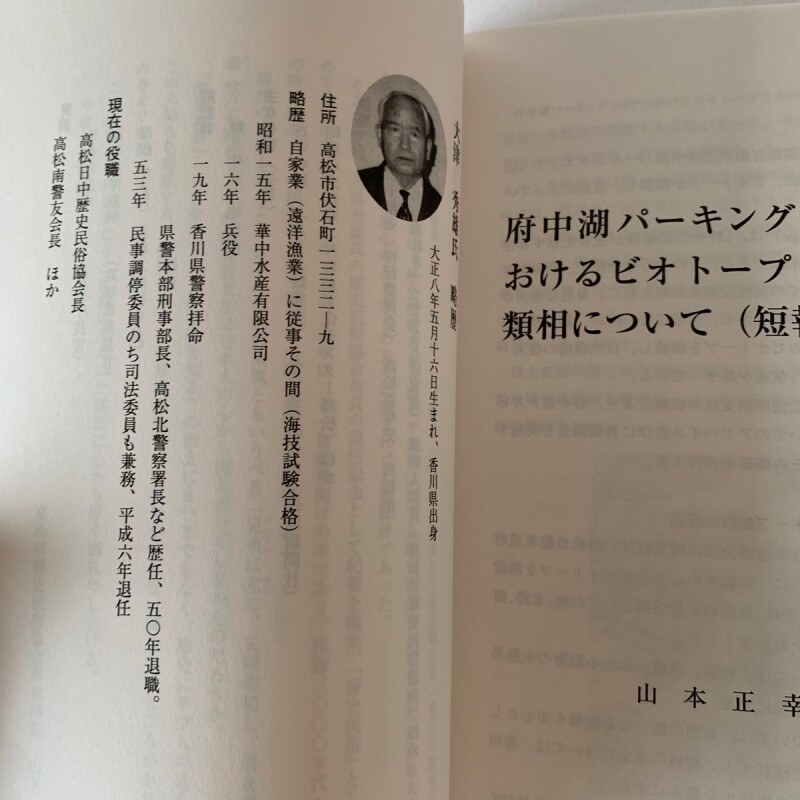 大津 氏 略歴
大正八年五月十六日生まれ、香川県出身
住所 高松市伏石町一三三二―九
略歴 自家業（遠洋漁業）に従事その間（海技試験合格）
昭和一五年 華中水産有限公司
一六年 兵役
一九年 香川県警察拝命
県警本部刑事部長、高松北警察署長など歴任、五〇年退職。
五三年 民事調停委員のち司法委員も兼務、平成六年退任
現在の役職
高松日中歴史民俗協会長
高松南警友会長 ほか
府中湖パーキング
おけるビオトープ
類相について（短報
山本正幸